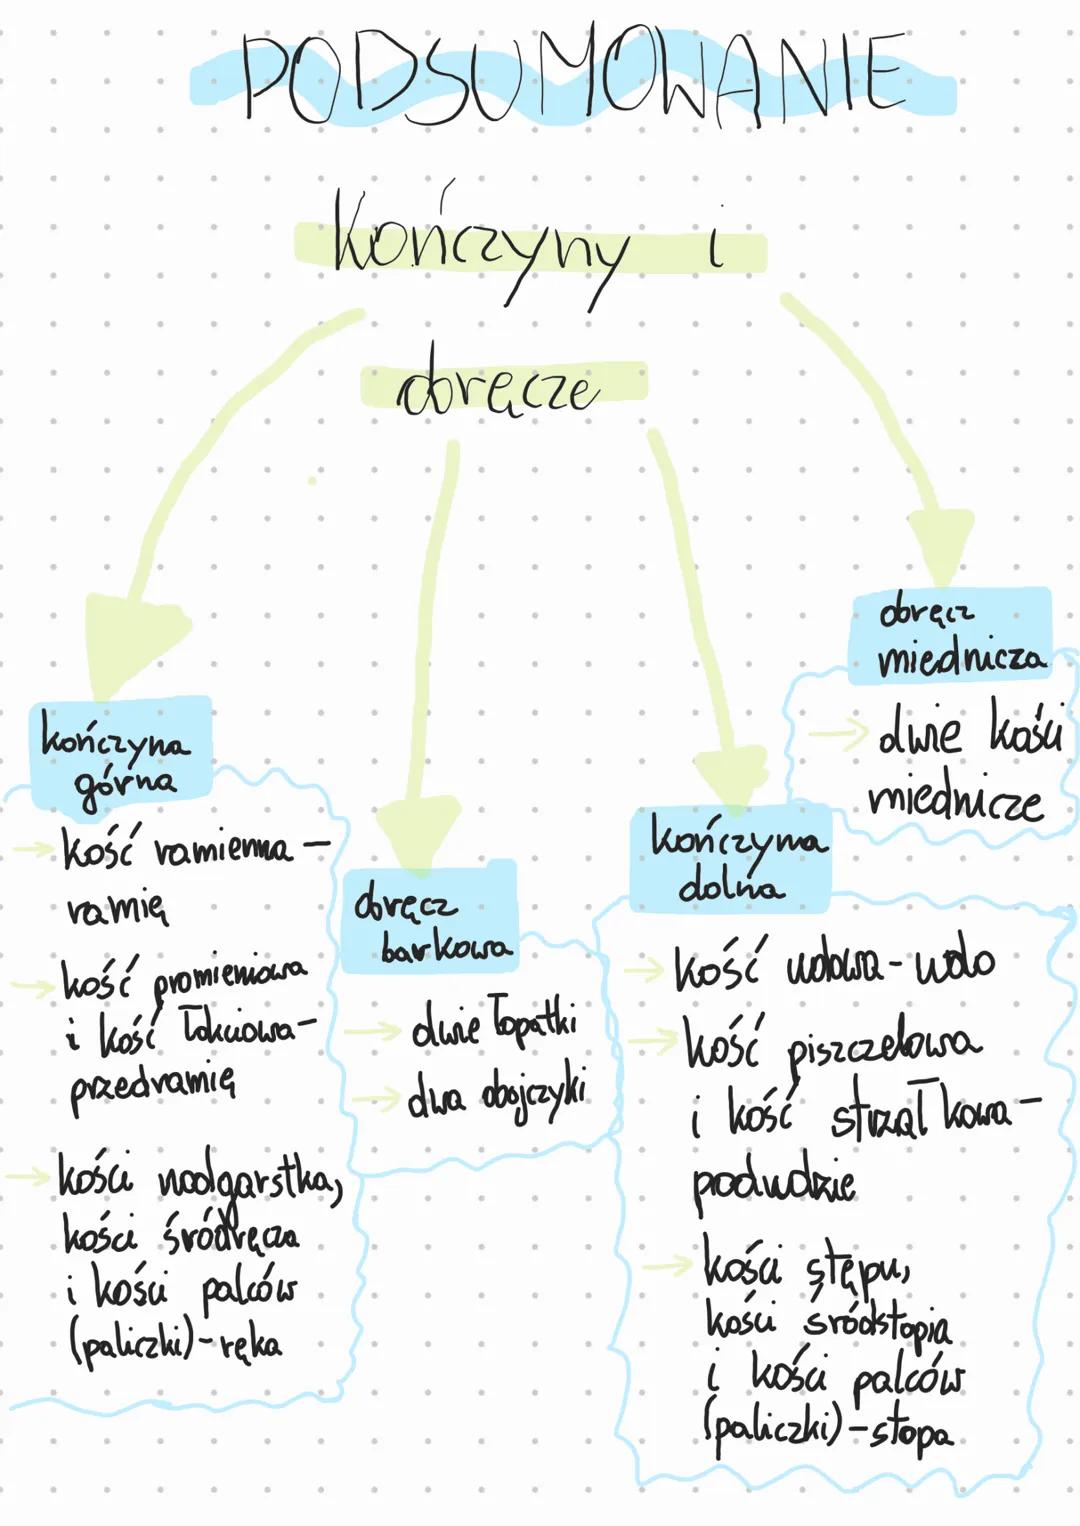 PODSUMOWANIE
kończyny i
obręcze
kończyna
górna
→ kość ramienna -
ramię
→ kość promieniowa
i kość łokciowa -
przedramię
→ kości nadgarstka,
kości śródręcza
i kości palców
(paliczki) - ręka
obręcz
barkowa
→ dwie łopatki
→ dwa obojczyki
kończyna
dolna
→ kość udowa - udo
→ kość piszczelowa
i kość strzałkowa -
podudzie
→ kości stępu,
kości śródstopia
i kości palców
(paliczki) - stopa
obręcz
miednicza
→ dwie kości
miednicze